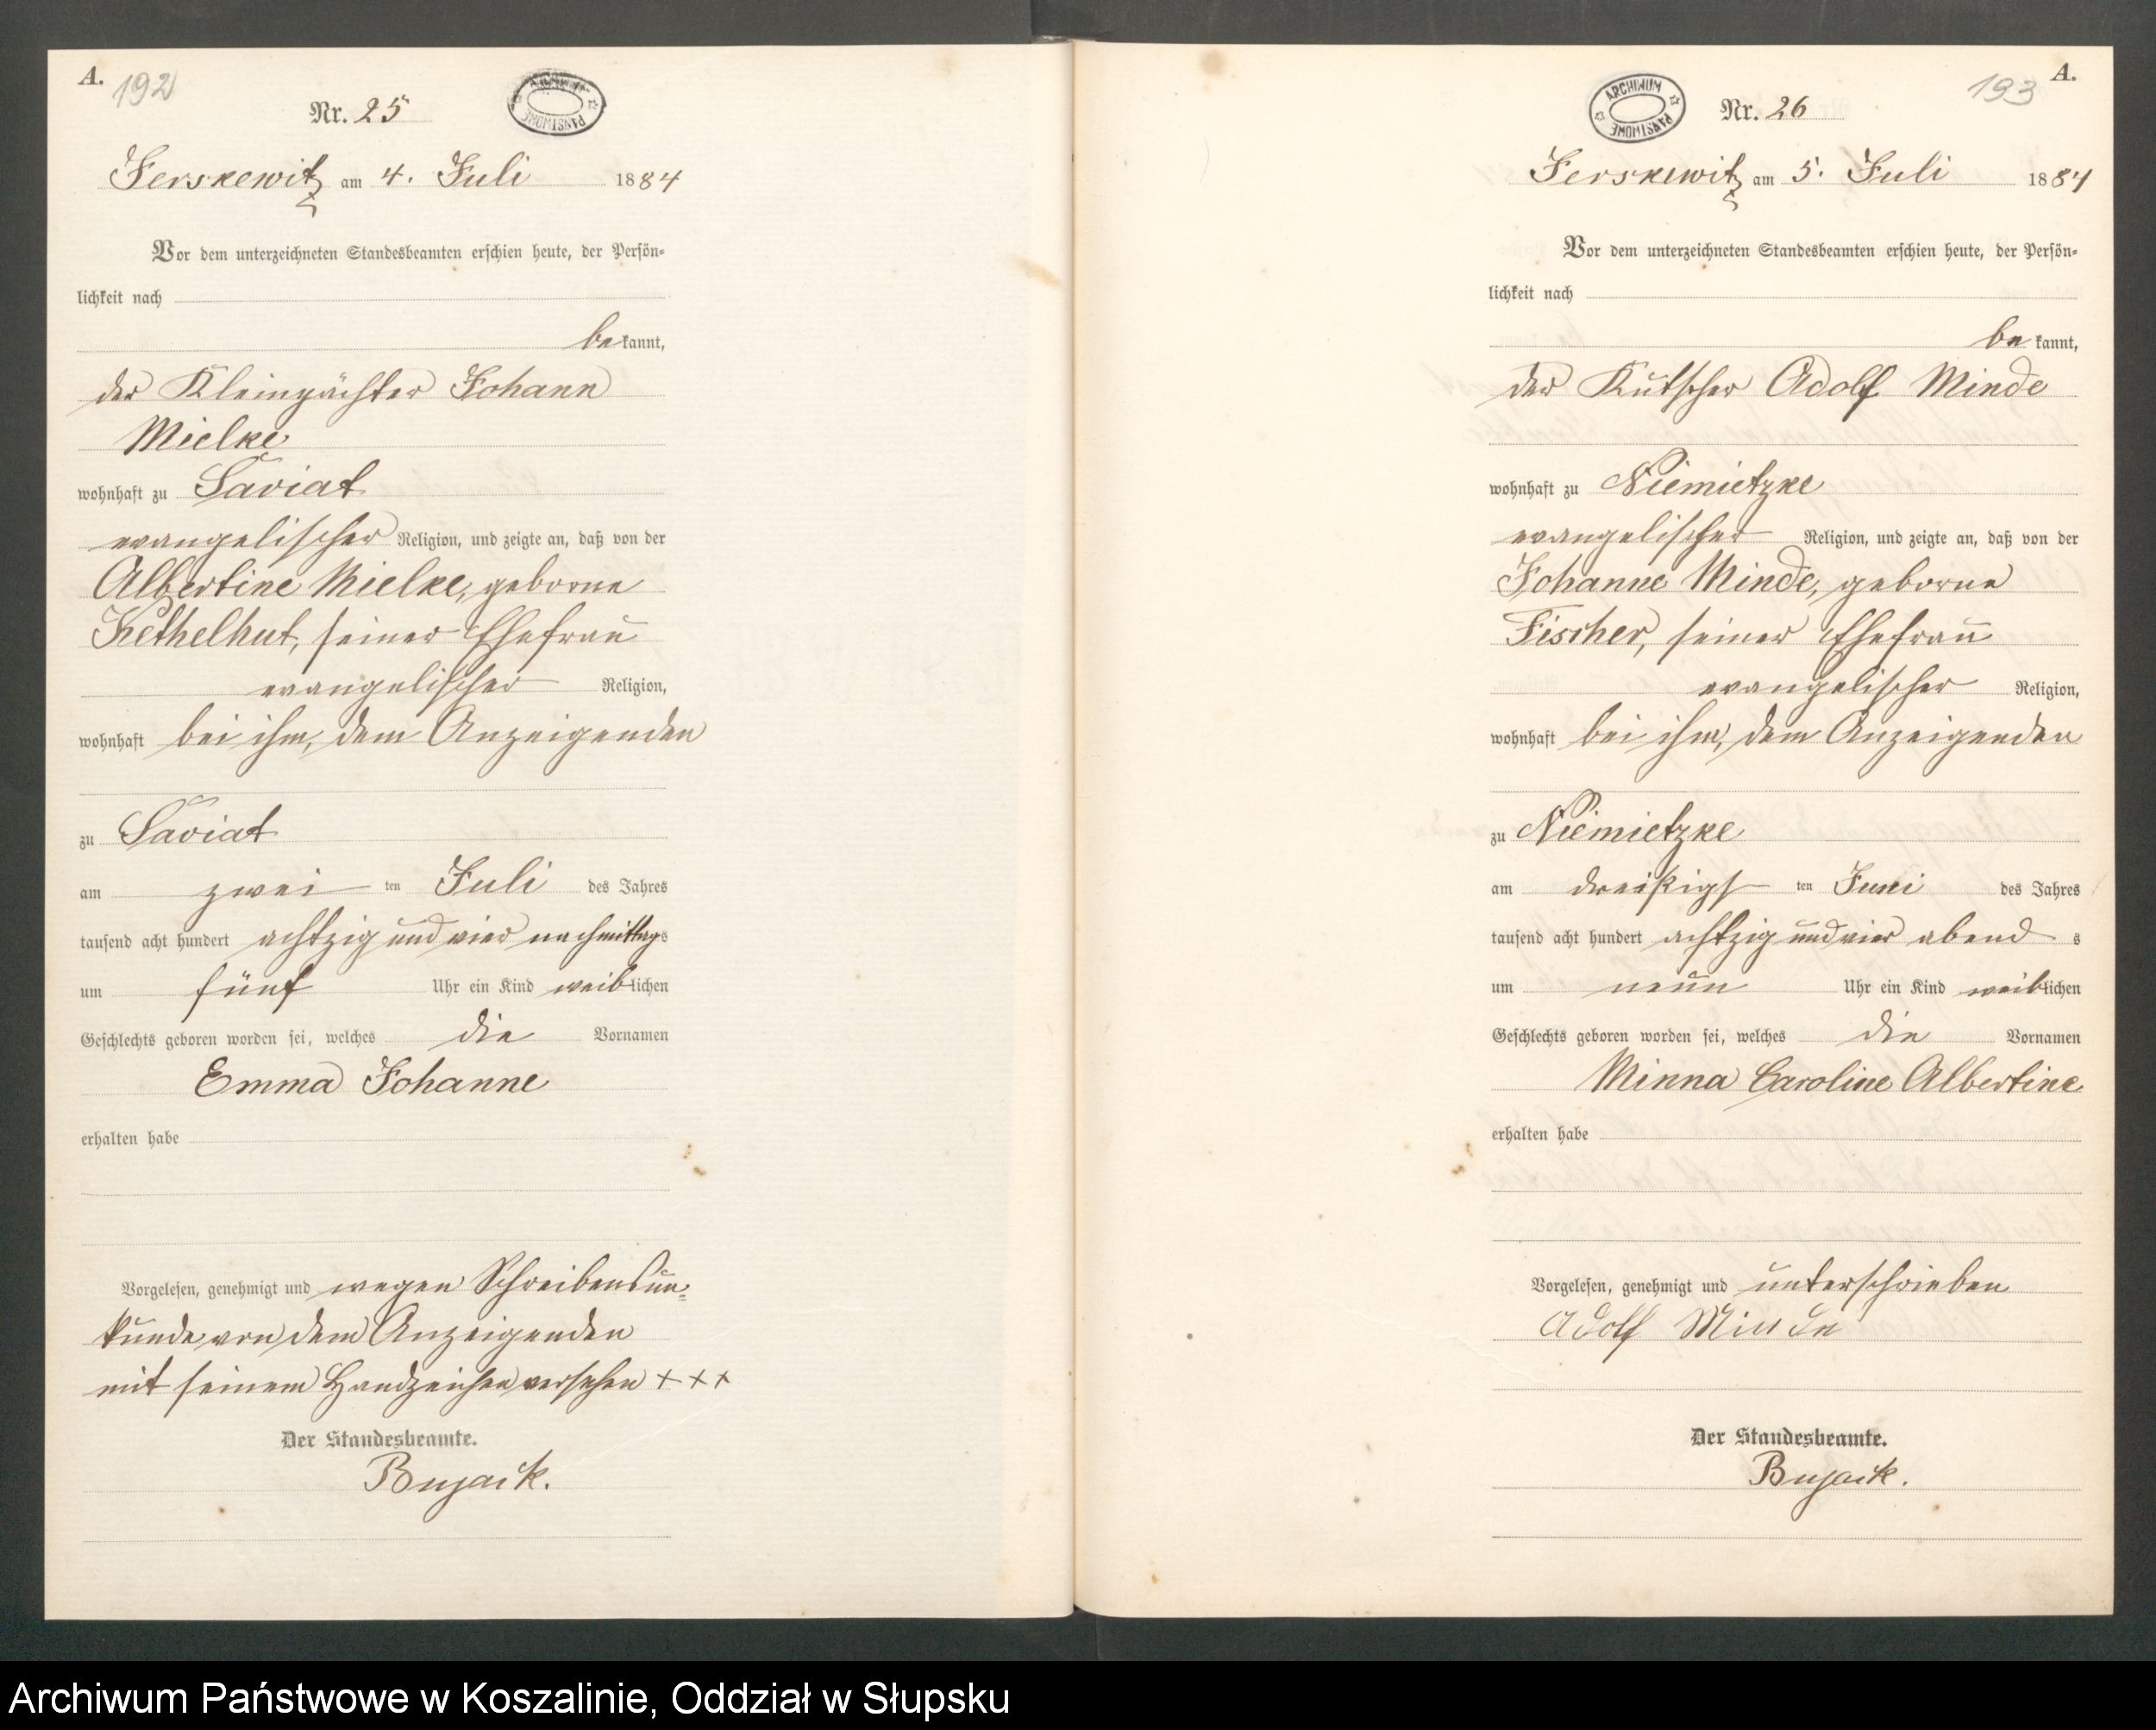 A.
192
Nr. 25
ARCHIWUM PAŃSTWOWE
Jerskewitz am 4. Juli 1884
Vor dem unterzeichneten Standesbeamten erschien heute, der Persön-
lichkeit nach
bekannt,
der Kleinpächter Johann
Mielke
wohnhaft zu Saviat
evangelischer Religion, und zeigte an, daß von der
Albertine Mielke, geborne
Kethelhut, seiner Ehefrau
evangelischer Religion,
wohnhaft bei ihm, dem Anzeigenden
zu Saviat
am zwei ten Juli des Jahres
tausend acht hundert achtzig und vier nachmittags
um fünf Uhr ein Kind weiblichen
Geschlechts geboren worden sei, welches die Vornamen
Emma Johanne
erhalten habe
Vorgelesen, genehmigt und wegen Schreibensun-
kunde von dem Anzeigenden
mit seinem Handzeichen versehen + + +
Der Standesbeamte.
Bujack.
A.
193
ARCHIWUM PAŃSTWOWE
Nr. 26
Jerskewitz am 5. Juli 1884
Vor dem unterzeichneten Standesbeamten erschien heute, der Persön-
lichkeit nach
bekannt,
der Kutscher Adolf Minde
wohnhaft zu Niemietzke
evangelischer Religion, und zeigte an, daß von der
Johanne Minde, geborne
Fischer, seiner Ehefrau
evangelischer Religion,
wohnhaft bei ihm, dem Anzeigenden
zu Niemietzke
am dreißigsten Juni des Jahres
tausend acht hundert achtzig und vier abends
um neun Uhr ein Kind weiblichen
Geschlechts geboren worden sei, welches die Vornamen
Minna Caroline Albertine
erhalten habe
Vorgelesen, genehmigt und unterschrieben
Adolf Minde
Der Standesbeamte.
Bujack.
Archiwum Państwowe w Koszalinie, Oddział w Słupsku